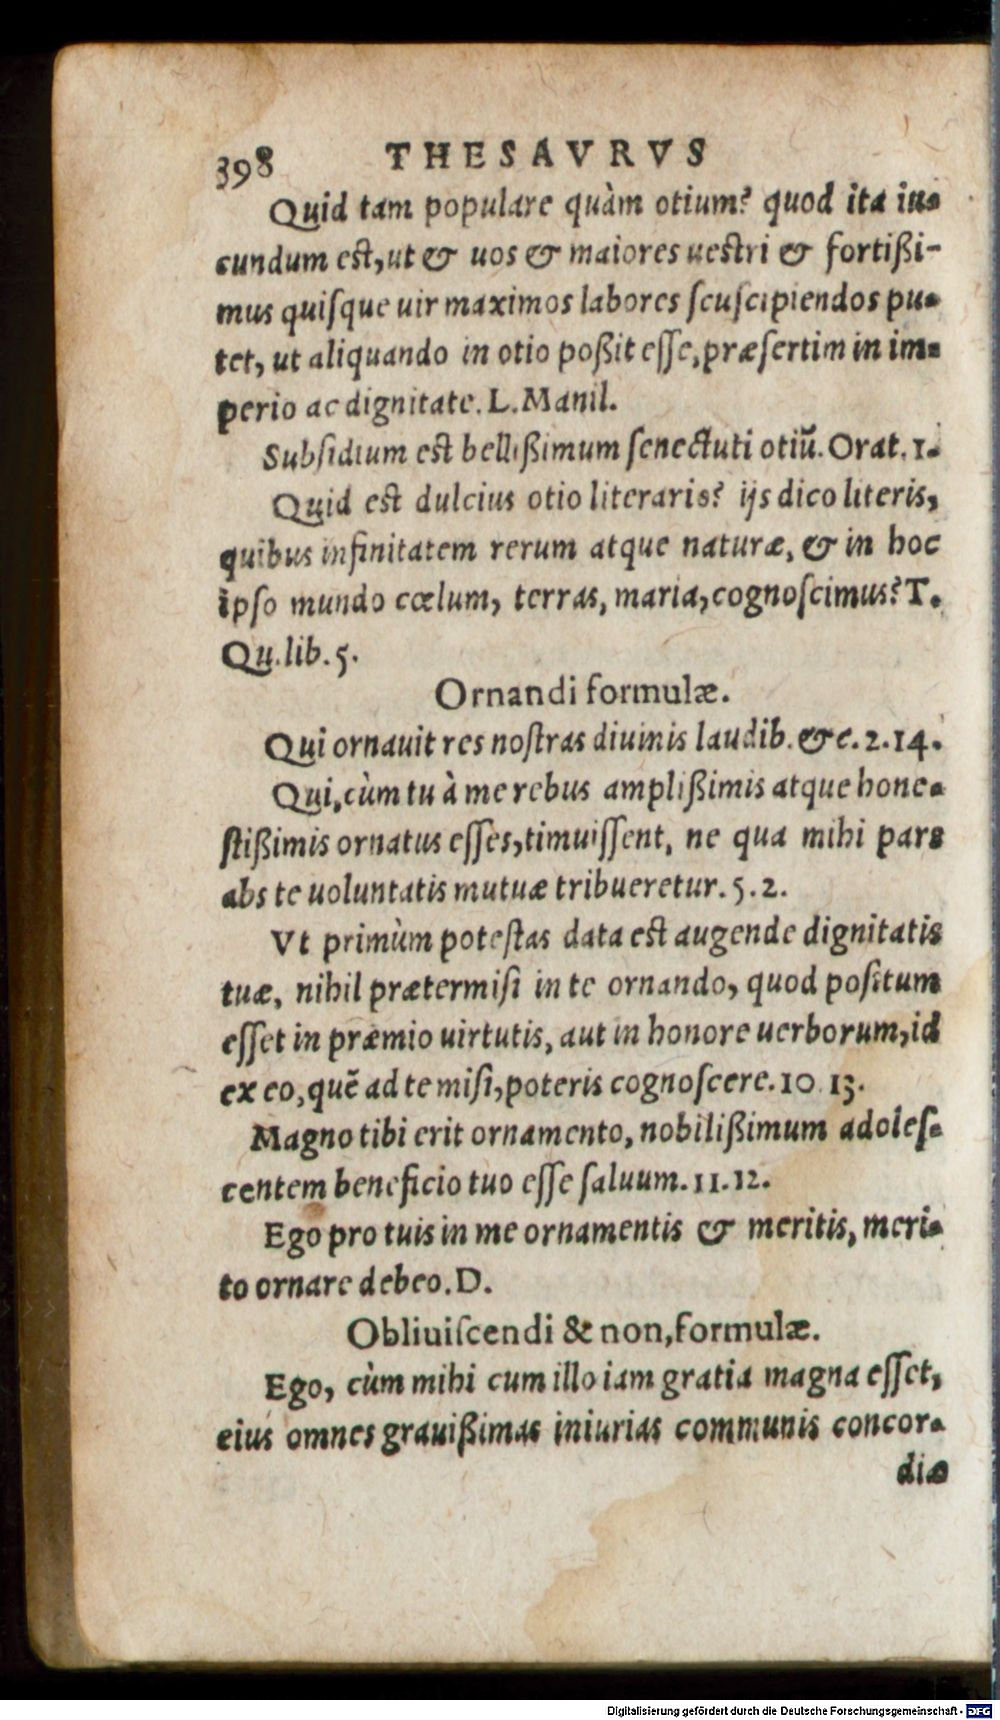 398 THESAVRVS
Quid tam populare quàm otium? quod ita iu-
cundum est, ut & uos & maiores uestri & fortißi-
mus quiſque uir maximos labores ſcuſcipiendos pu-
tet, ut aliquando in otio poßit eſſe, præſertim in im-
perio ac dignitate. L. Manil.
Subſidium est bellißimum ſenectuti otiū. Orat. 1.
Quid est dulcius otio literario? ijs dico literis,
quibus infinitatem rerum atque naturæ, & in hoc
ipſo mundo cœlum, terras, maria, cognoſcimus? T.
Qu. lib. 5.
Ornandi formulæ.
Qui ornauit res noſtras diuinis laudib. &c. 2. 14.
Qui, cùm tu à me rebus amplißimis atque hone-
ſtißimis ornatus eſſes, timuiſſent, ne qua mihi pars
abs te uoluntatis mutuæ tribueretur. 5. 2.
Vt primùm poteſtas data est augende dignitatis
tuæ, nihil prætermiſi in te ornando, quod poſitum
eſſet in præmio uirtutis, aut in honore uerborum, id
ex eo, quē ad te miſi, poteris cognoſcere. 10 13.
Magno tibi erit ornamento, nobilißimum adoleſ-
centem beneficio tuo eſſe ſaluum. 11. 12.
Ego pro tuis in me ornamentis & meritis, meri-
to ornare debeo. D.
Obliuiſcendi & non, formulæ.
Ego, cùm mihi cum illo iam gratia magna eſſet,
eius omnes grauißimas iniurias communis concor-
diæ
Digitalisierung gefördert durch die Deutsche Forschungsgemeinschaft - DFG